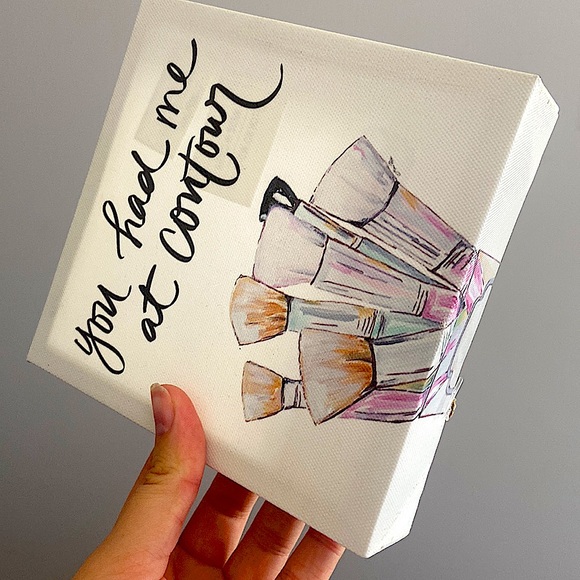 you had me
at contour